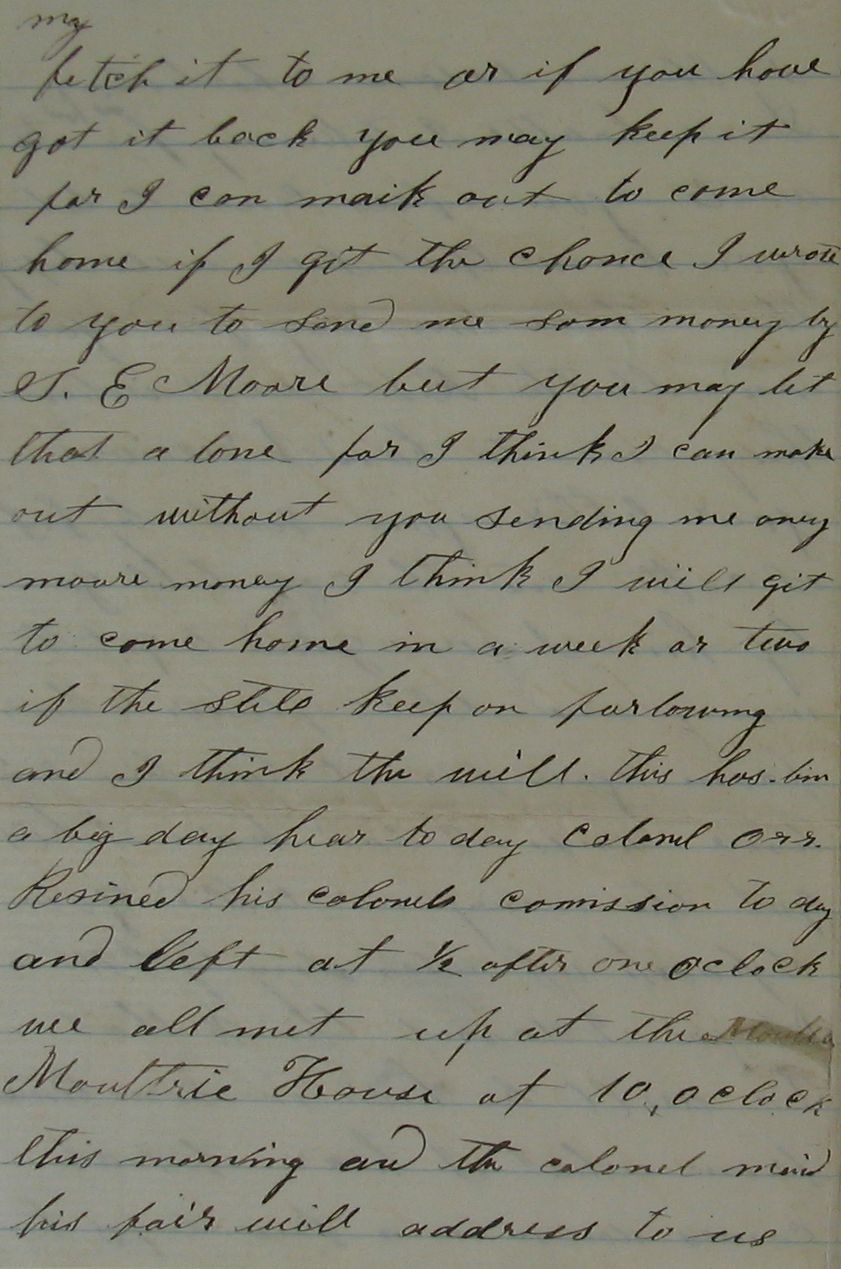 my
fetch it to me or if you have
got it back you may keep it
for I can maik out to come
home if I git the chance I wrote
to you to send me som money by
S. E Moore but you may let
that a lone for I think I can make
out without you sending me any
moore money I think I will git
to come home in a week or two
if the still keep on furlowing
and I think the will. this has bin
a big day hear to day Colonel Orr.
Resined his colonels comission to day
and left at ½ after one oclock
we all met up at the
Moultrie House at 10, oclock
this morning and the colonel maid
his fair will address to us